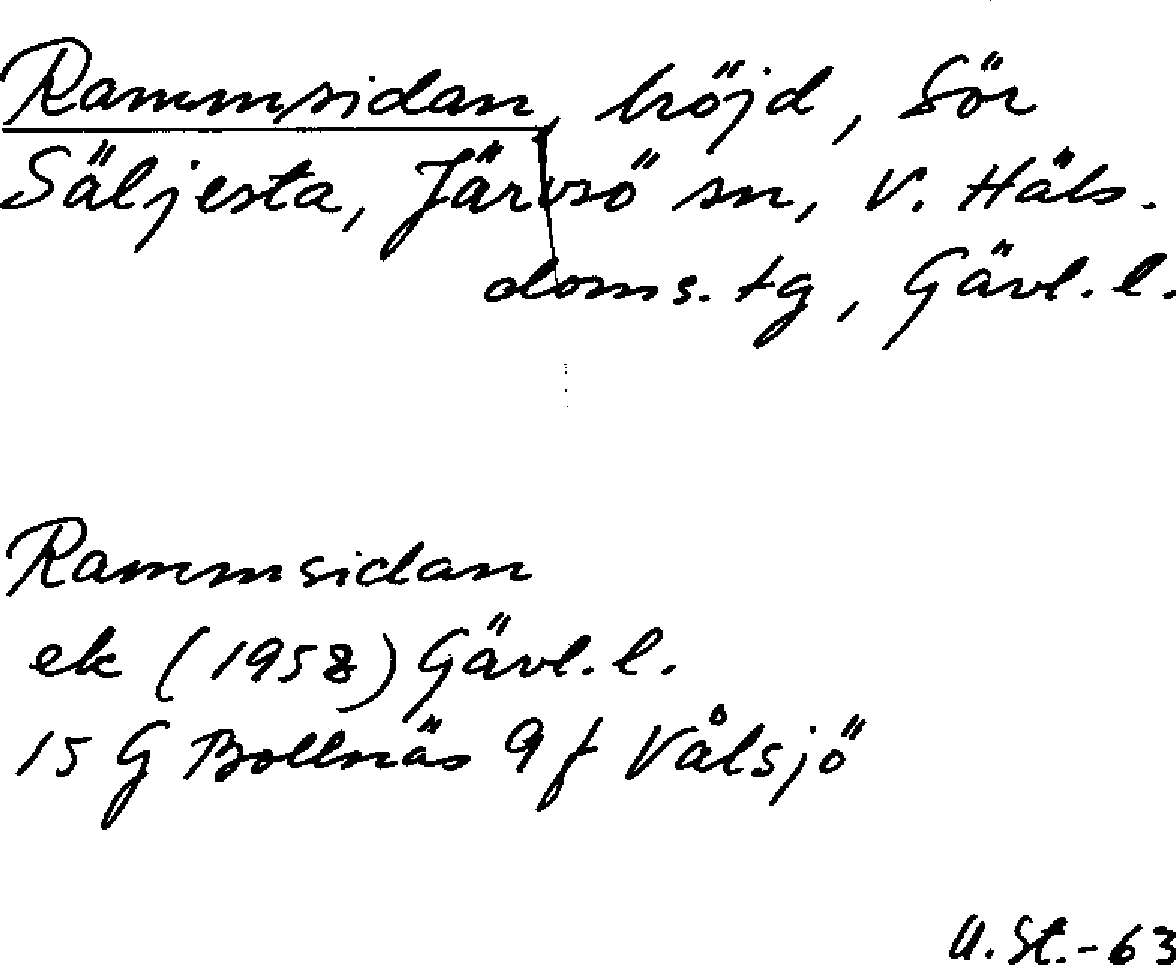 Rammsidan, höjd, Sör
Säljesta, Järvsö sn, V. Häls.
doms. tg, Gävl. l.
Rammsidan
ek (1958) Gävl. l.
15 G Bollnäs 9 f Vålsjö
U. St. - 63